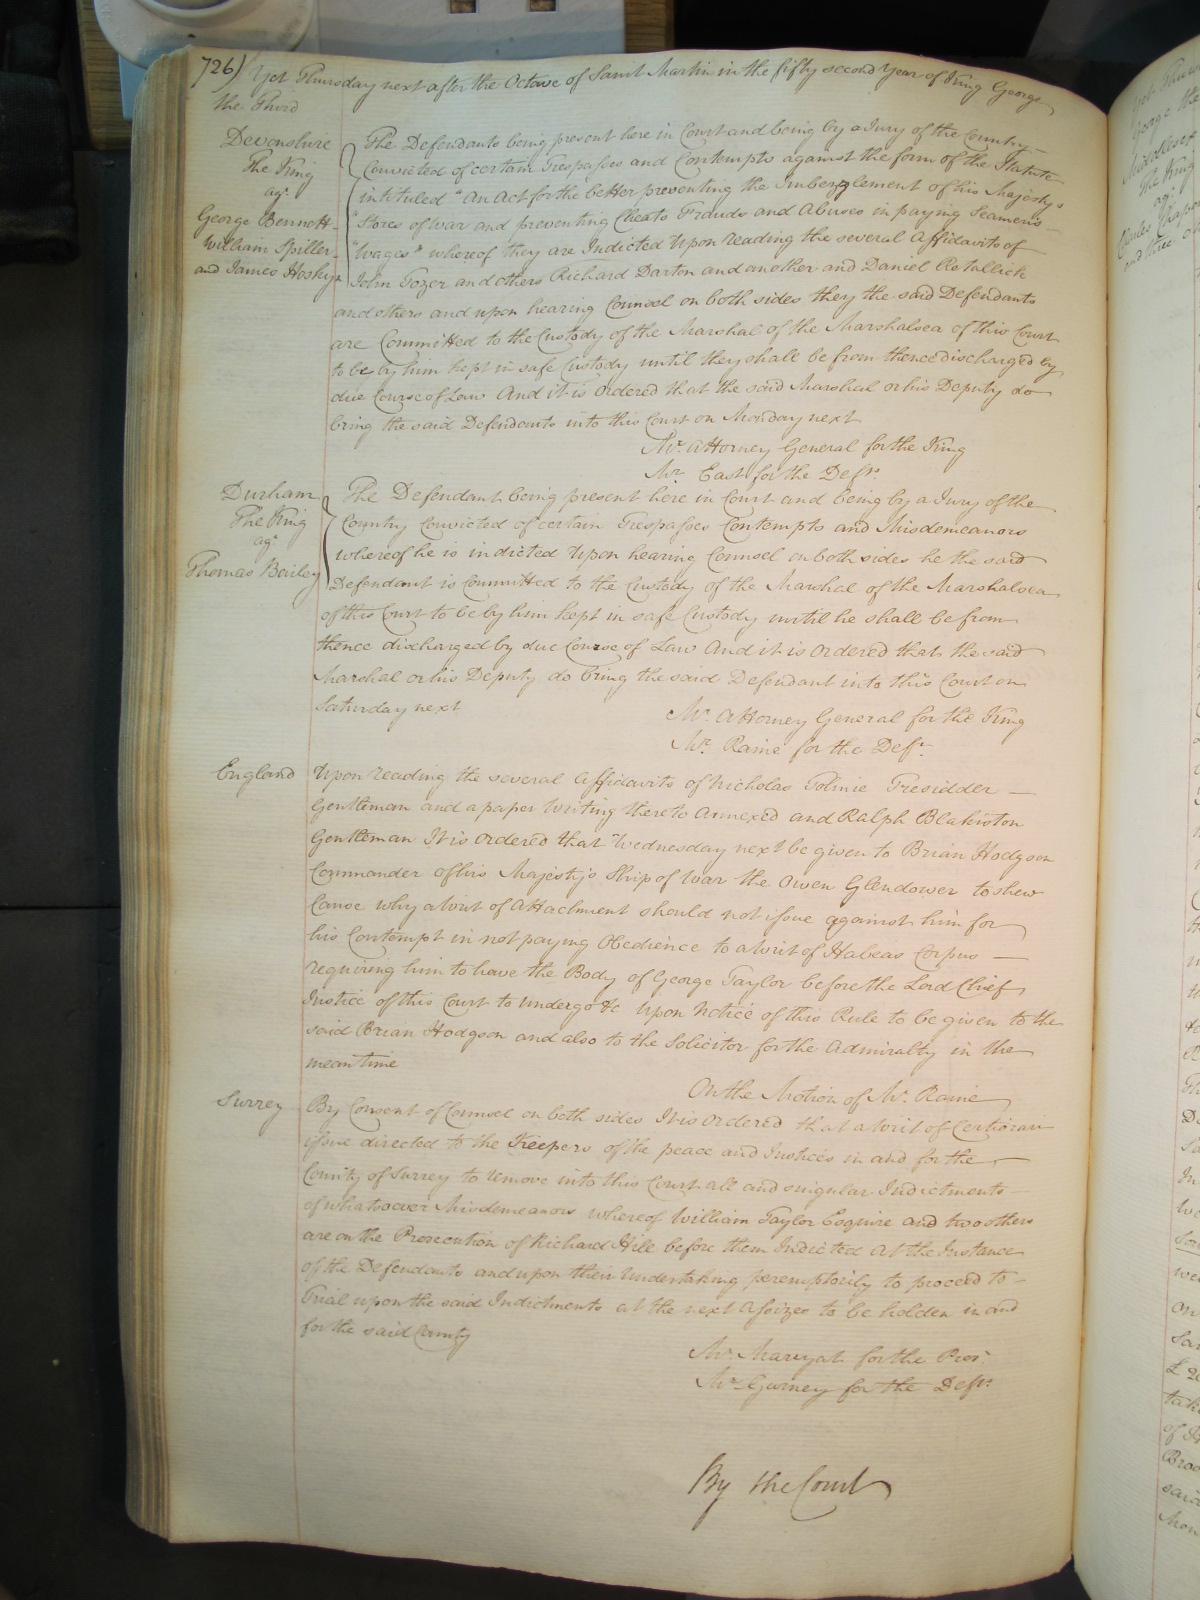 726) Yet Thursday next after the Octave of Saint Martin in the fifty second Year of King George
the Third
Devonshire
The King
agt.
George Bennett
William Spiller
and James Hoskyn
The Defendants being present here in Court and being by a Jury of the Country
Convicted of certain Trespasses and Contempts against the form of the Statute
intituled "An Act for the better preventing the Imbezzlement of his Majestys
"Stores of War and preventing Cheats Frauds and Abuses in paying Seamen's
"Wages" whereof they are Indicted Upon reading the several Affidavits of
John Tozer and others Richard Darton and another and Daniel Retallick
and others and upon hearing Counsel on both sides they the said Defendants
are Committed to the Custody of the Marshal of the Marshalsea of this Court
to be by him kept in safe Custody until they shall be from thence discharged by
due Course of Law And it is Ordered that the said Marshal or his Deputy do
bring the said Defendants into this Court on Monday next
Mr. Attorney General for the King
Mr. East for the Defts.
Durham
The King
agt.
Thomas Bailey
The Defendant being present here in Court and being by a Jury of the
Country Convicted of certain Trespasses Contempts and Misdemeanors
whereof he is indicted Upon hearing Counsel on both sides he the said
Defendant is Committed to the Custody of the Marshal of the Marshalsea
of this Court to be by him kept in safe Custody until he shall be from
thence discharged by due Course of Law And it is Ordered that the said
Marshal or his Deputy do bring the said Defendant into this Court on
Saturday next
Mr. Attorney General for the King
Mr. Raine for the Deft.
England
Upon reading the several Affidavits of Nicholas Tolmie Tresidder
Gentleman and a paper Writing thereto Annexed and Ralph Blakiston
Gentleman It is Ordered that Wednesday next be given to Brian Hodgson
Commander of his Majesty's Ship of War the Owen Glendower to shew
Cause why a Writ of Attachment should not issue against him for
his Contempt in not paying Obedience to a Writ of Habeas Corpus
requiring him to have the Body of George Taylor before the Lord Chief
Justice of this Court to Undergo &c Upon Notice of this Rule to be given to the
said Brian Hodgson and also to the Solicitor for the Admiralty in the
mean time
On the Motion of Mr. Raine
Surrey
By Consent of Counsel on both sides It is Ordered that a Writ of Certiorari
issue directed to the Keepers of the peace and Justices in and for the
County of Surrey to remove into this Court all and singular Indictments
of whatsoever Misdemeanors whereof William Taylor Esquire and two others
are on the Prosecution of Richard Hill before them Indicted At the Instance
of the Defendants and upon their Undertaking peremptorily to proceed to
Trial upon the said Indictments at the next Assizes to be holden in and
for the said County
Mr. Marryat for the Pros.
Mr. Gurney for the Defts.
By the Court